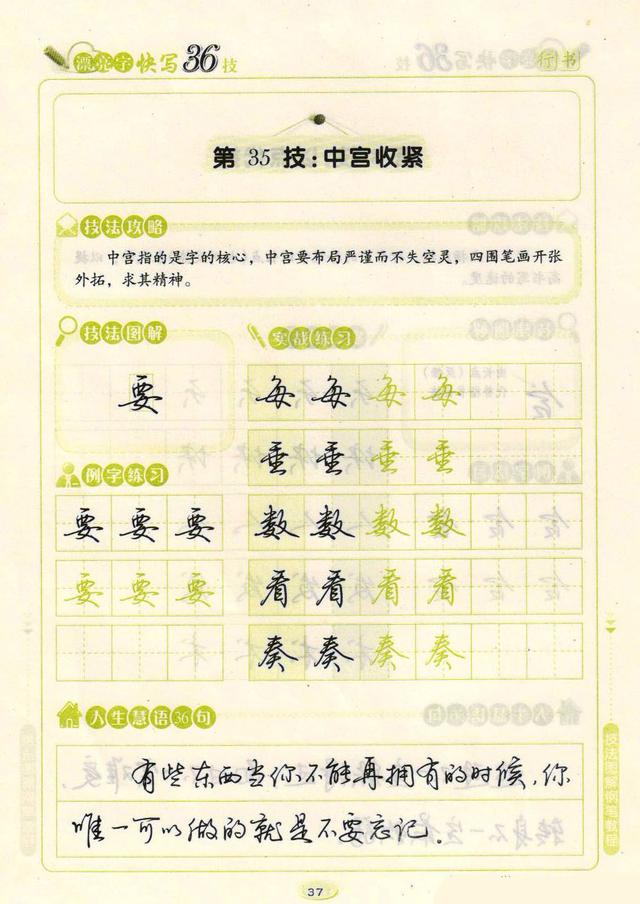 漂亮字快写36技
行书
第 35 技:中宫收紧
技法攻略
中宫指的是字的核心,中宫要布局严谨而不失空灵,四围笔画开张
外拓,求其精神。
技法图解
实战练习
要
每 每 每 每
垂 垂 垂 垂
例字练习
要 要 要
数 数 数 数
要 要 要
看 看 看 看
奏 奏 奏 奏
人生慧语36句
有些东西当你不能再拥有的时候,你
唯一可以做的就是不要忘记.
技法图解钢笔教程
37